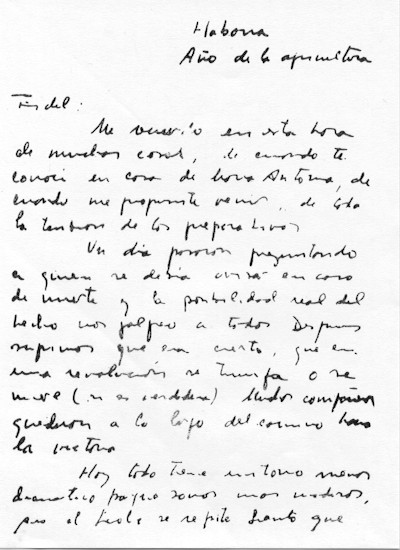 Habana
Año de la agricultura
Fidel:
Me recuerdo en esta hora
de muchas cosas, de cuando te
conocí en casa de María Antonia, de
cuando me propusiste venir, de toda
la tension de los preparativos
Un dia pasaron preguntando
a quien se debia avisar en caso
de muerte y la posibilidad real del
hecho nos golpeó a todos Despues
supimos que era cierto, que en
una revolución se triunfa o se
muere (si es verdadera) Muchos compañeros
quedaron a lo largo del camino hacia
la victoria
Hoy todo tiene un tono menos
dramatico porque somos mas maduros,
pero el hecho se repite Siento que